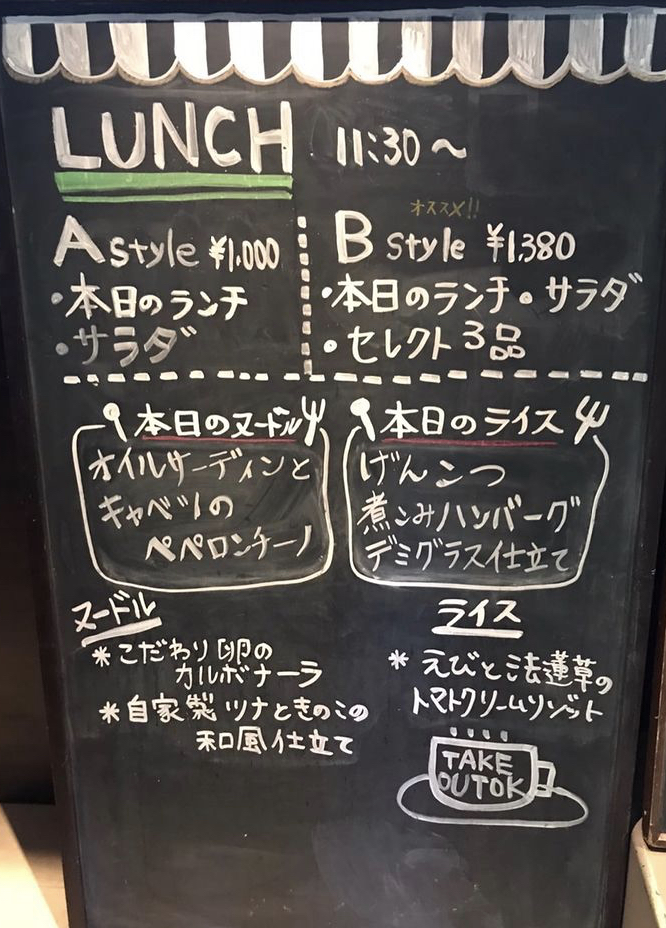 LUNCH 11:30～
A style ¥1,000
・本日のランチ
・サラダ
オススメ!!
B style ¥1,380
・本日のランチ・サラダ
・セレクト3品
本日のヌードル
オイルサーディンと
キャベツの
ペペロンチーノ
本日のライス
げんこつ
煮こみハンバーグ
デミグラス仕立て
ヌードル
*こだわり卵の
カルボナーラ
*自家製ツナときのこの
和風仕立て
ライス
*えびとほ法蓮草の
トマトクリームリゾット
TAKE
OUTOK